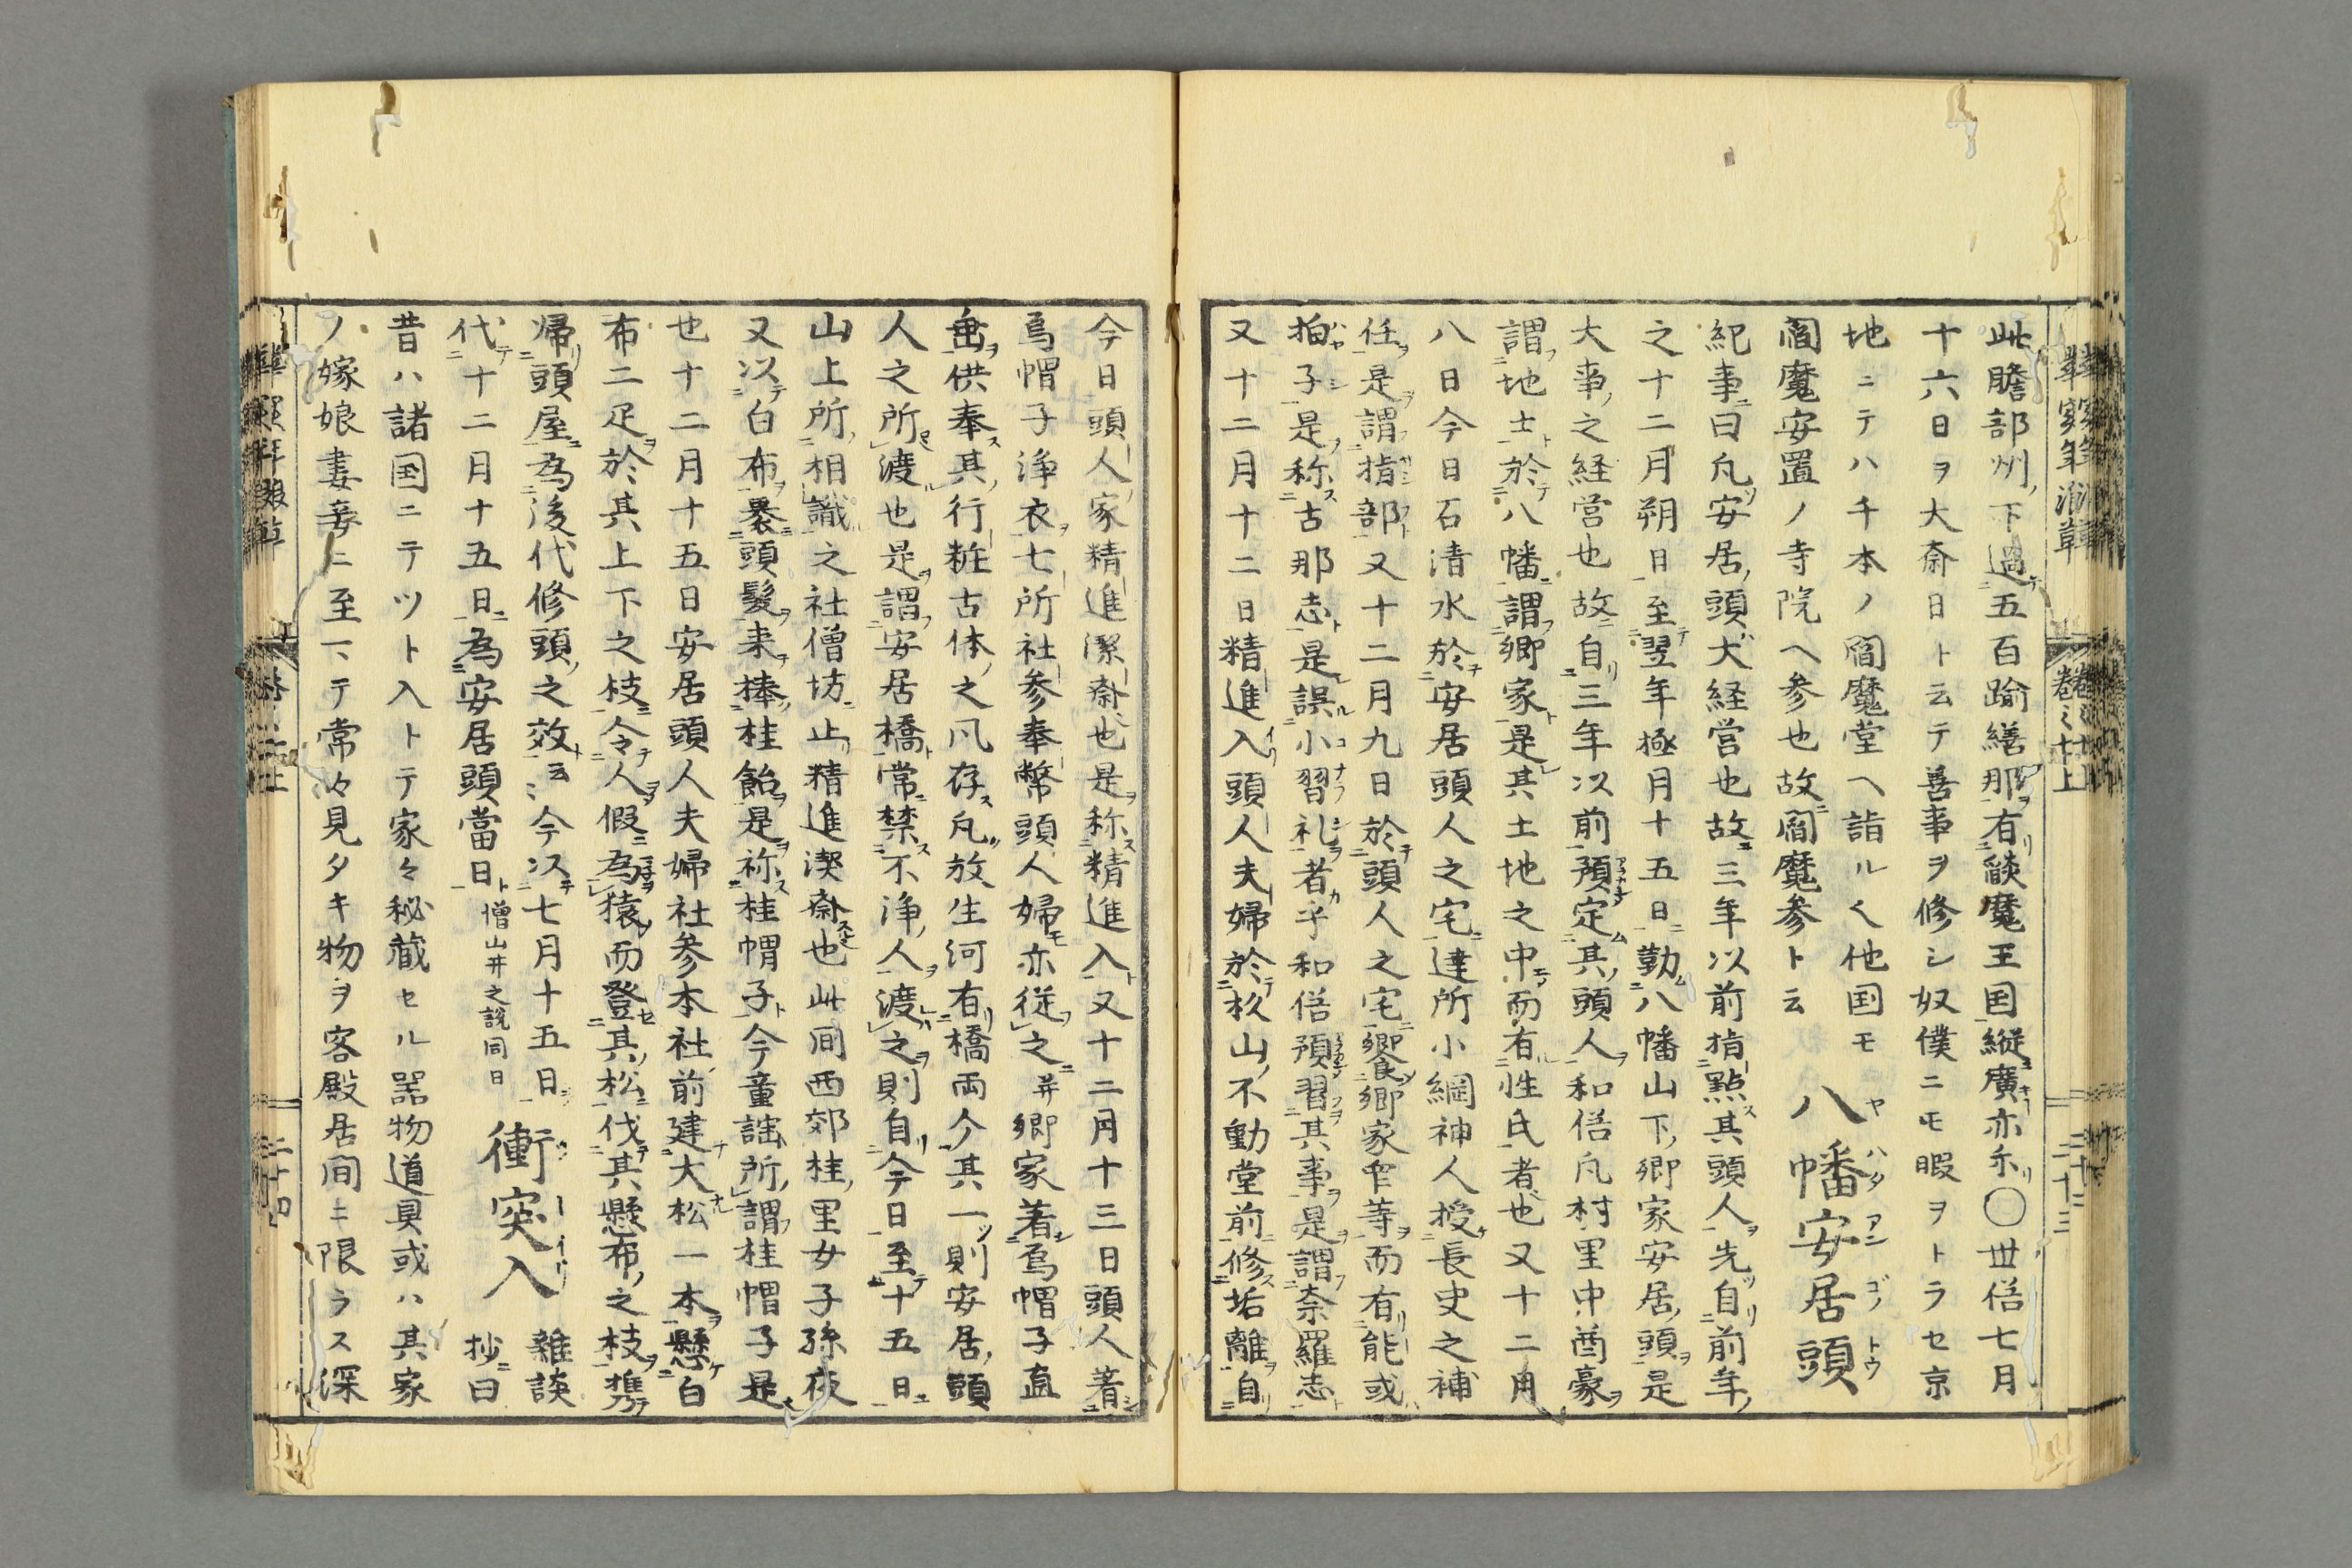 此贍部州下過五百踰繕那有琰魔王国縦廣亦尓〇世俗七月
十六日ヲ大斎日ト云テ善事ヲ修シ奴僕ニモ暇ヲトラセ京
地ニテハ千本ノ閻魔堂ヘ詣ルく他国モ
閻魔安置ノ寺院ヘ参也故閻魔参ト云
八幡安居頭
紀事曰凡安居頭大経営也故三年以前指點其頭人先自前年
之十二月朔日至翌年極月十五日勤八幡山下郷家安居頭是
大事之経営也故自三年以前預定其頭人和俗凡村里中酋豪
謂地士於八幡謂郷家是其土地之中而有性氏者也又十二月
八日今日石清水於安居頭人之宅達所小綱神人授長吏之補
任是謂指部又十二月九日於頭人之宅饗郷家中等而有能或
拍子是称古那志是誤小習礼者乎和俗預習其事是謂奈羅志
又十二月十二日精進入頭人夫婦於杦山不動堂前修垢離自
今日頭人家精進潔斎也是称精進入又十二月十三日頭人著
烏帽子浄衣七所社参奉幣頭人婦亦従之并郷家著烏帽子直
垂供奉其行粧古体之凡存凡放生河有橋両今其一則安居頭
人之所渡也是謂安居橋常禁不浄人渡之則自今日至十五日
山上所相識之社僧坊止精進潔斎也此间西郊桂里女子孫夜
又以白布裹頭髪来捧桂飴是称桂帽子今童謡所謂桂帽子是
也十二月十五日安居頭人夫婦社参本社前建大松一本懸白
布二疋於其上下之枝令人假為猿而登其松伐其懸布之枝携
帰頭屋為後代修頭之效云今以七月十五日
代十二月十五日為安居頭當日
憎山井之説同日
衝突入
雑談
抄曰
昔ハ諸国ニテツト入トテ家々秘蔵セル器物道具或ハ其家
ノ嫁娘妻妾ニ至ヽテ常々見タキ物ヲ客殿居间ニ限ラス深
巻之十上
二十三